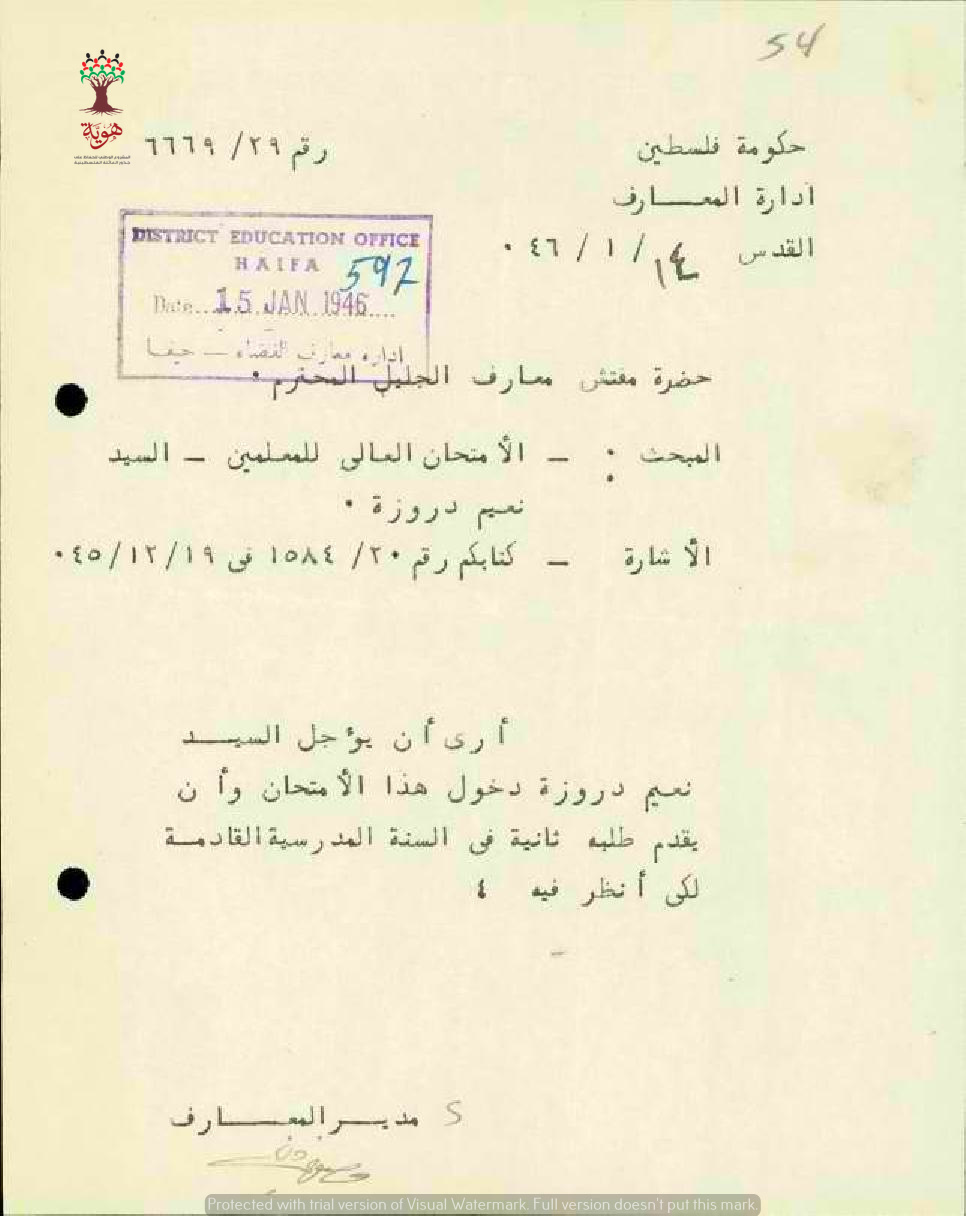 54
هوية
حكومة فلسطين
رقم ٢٩/ ٦٦٦٩
ادارة المعـــارف
القدس ١٤/ ١ / ٤٦ ٠
DISTRICT EDUCATION OFFICE
HAIFA
592
Date...15 JAN 1946....
ادارة معارف القضاء — حيفا
حضرة مفتش معارف الجليل المحترم ٠
المبحث : — الأمتحان العالى للمعلمين — السيد
نعيم دروزة ٠
الأشارة — كتابكم رقم ٢٠/ ١٥٨٤ فى ١٩/١٢/٤٥ ٠
أرى أن يؤجل السيـــد
نعيم دروزة دخول هذا الأمتحان وأن
يقدم طلبه ثانية فى السنة المدرسية القادمـة
لكى أنظر فيه ٤
S مديـــر المعـــارف
Protected with trial version of Visual Watermark. Full version doesn't put this mark.